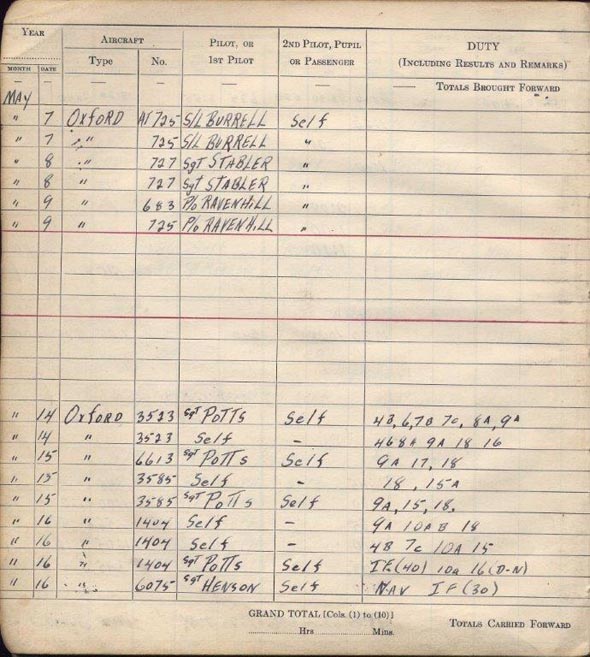 YEAR AIRCRAFT PILOT, OR 1ST PILOT 2ND PILOT, PUPIL OR PASSENGER DUTY (INCLUDING RESULTS AND REMARKS)
MONTH DATE Type No.
— — — — — — — TOTALS BROUGHT FORWARD
MAY
" 7 OXFORD AT 725 S/L BURRELL Self
" 7 " 725 S/L BURRELL "
" 8 " 727 Sgt STABLER "
" 8 " 727 Sgt STABLER "
" 9 " 683 P/o RAVENHILL "
" 9 " 725 P/o RAVENHILL "
" 14 OXFORD 3523 Sgt POTTS Self 4B,6,7B 7c, 8A, 9A
" 14 " 3523 Self – 4 6 8A 9A 18 16
" 15 " 6613 Sgt POTTS Self 9A 17, 18
" 15 " 3585 Self – 18, 15A
" 15 " 3585 Sgt POTTS Self 9A, 15, 18.
" 16 " 1404 Self – 9A 10A B 18
" 16 " 1404 Self – 4B 7c 10A 15
" 16 " 1404 Sgt POTTS Self IF(40) 10a 16(D-N)
" 16 " 6075 Sgt HENSON Self NAV IF(30)
GRAND TOTAL [Cols. (1) to (10)]
Hrs Mins. TOTALS CARRIED FORWARD